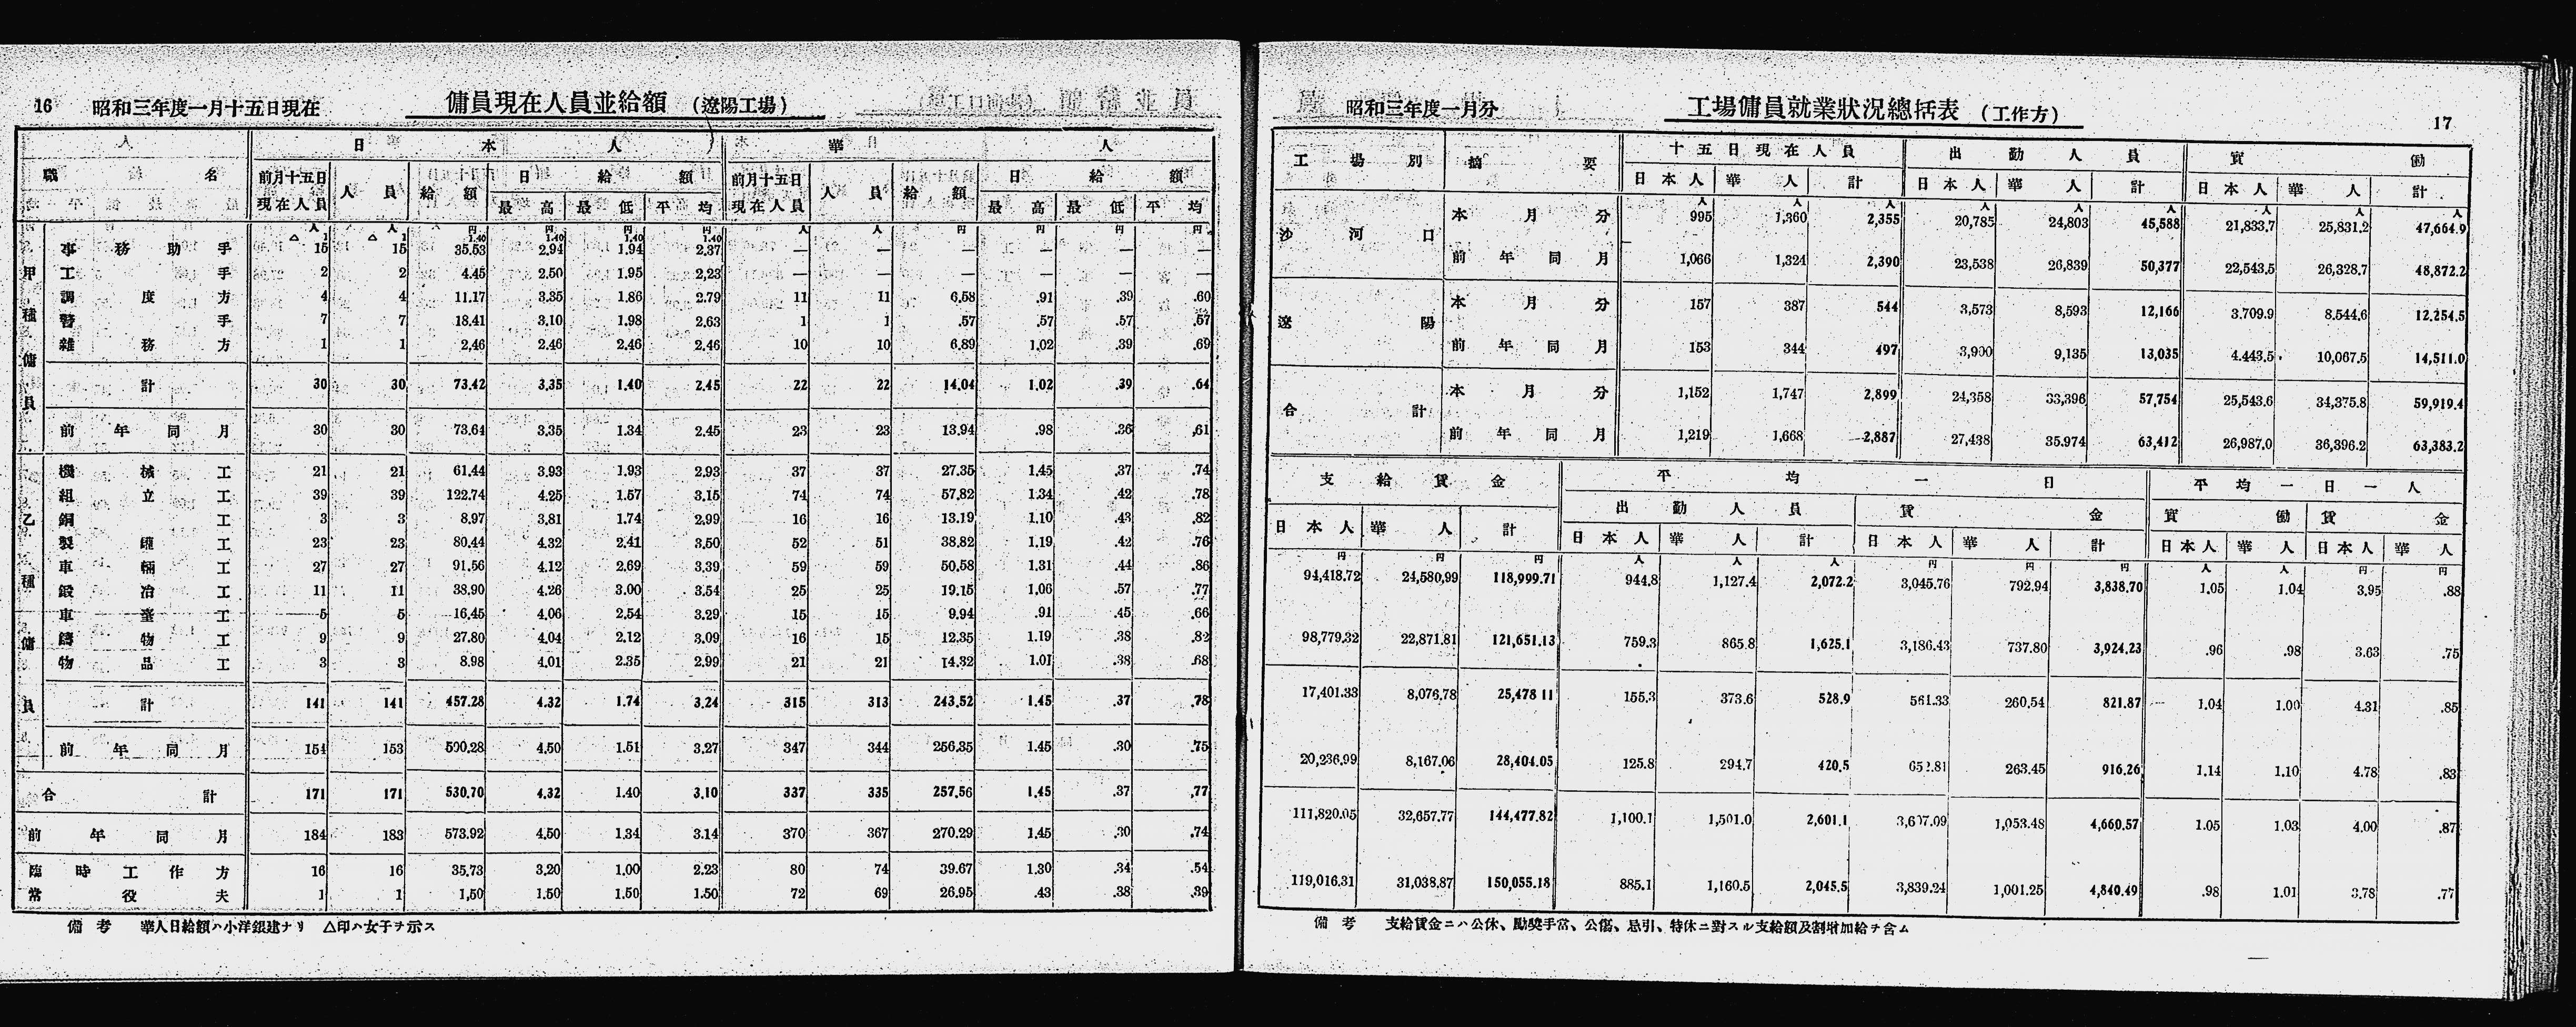 16 昭和三年度一月十五日現在 傭員現在人員並給額 (遼陽工場)
人 日本人 華人
職名 前月十五日現在人員 人員 給額 日給額 前月十五日現在人員 人員 給額 日給額
最高 最低 平均 最高 最低 平均
人 人 円 円 円 円 人 人 円 円 円 円
△1 △1 1.40 1.40 1.40 1.40
甲種傭員
事務助手 15 15 35.53 2.94 1.94 2.37 — — — — — —
工手 2 2 4.45 2.50 1.95 2.23 — — — — — —
調度方 4 4 11.17 3.35 1.86 2.79 11 11 6.58 .91 .39 .60
警手 7 7 18.41 3.10 1.98 2.63 1 1 .57 .57 .57 .57
雜務方 1 1 2.46 2.46 2.46 2.46 10 10 6.89 1.02 .39 .69
計 30 30 73.42 3.35 1.40 2.45 22 22 14.04 1.02 .39 .64
前年同月 30 30 73.64 3.35 1.34 2.45 23 23 13.94 .98 .36 .61
乙種傭員
機械工 21 21 61.44 3.93 1.93 2.93 37 37 27.35 1.45 .37 .74
組立工 39 39 122.74 4.25 1.57 3.15 74 74 57.82 1.34 .42 .78
銅工 3 3 8.97 3.81 1.74 2.99 16 16 13.19 1.10 .43 .82
製罐工 23 23 80.44 4.32 2.41 3.50 52 51 38.82 1.19 .42 .76
車輛工 27 27 91.56 4.12 2.69 3.39 59 59 50.58 1.31 .44 .86
鍛冶工 11 11 38.90 4.26 3.00 3.54 25 25 19.15 1.06 .57 .77
車工 5 5 16.45 4.06 2.54 3.29 15 15 9.94 .91 .45 .66
鑄物工 9 9 27.80 4.04 2.12 3.09 16 15 12.35 1.19 .38 .82
物品工 3 3 8.98 4.01 2.35 2.99 21 21 14.32 1.01 .38 .68
計 141 141 457.28 4.32 1.74 3.24 315 313 243.52 1.45 .37 .78
前年同月 154 153 500.28 4.50 1.51 3.27 347 344 256.35 1.45 .30 .75
合計 171 171 530.70 4.32 1.40 3.10 337 335 257.56 1.45 .37 .77
前年同月 184 183 573.92 4.50 1.34 3.14 370 367 270.29 1.45 .30 .74
臨時工作方 16 16 35.73 3.20 1.00 2.23 80 74 39.67 1.30 .34 .54
常役夫 1 1 1.50 1.50 1.50 1.50 72 69 26.95 .43 .38 .39
備考 華人日給額ハ小洋銀建ナリ △印ハ女子ヲ示ス
昭和三年度一月分 工場傭員就業狀況總括表 (工作方) 17
工場別 摘要 十五日現在人員 出勤人員 實働
日本人 華人 計 日本人 華人 計 日本人 華人 計
人 人 人 人 人 人 人 人 人
沙河口 本月分 995 1,360 2,355 20,785 24,803 45,588 21,833.7 25,831.2 47,664.9
前年同月 1,066 1,324 2,390 23,538 26,839 50,377 22,543.5 26,328.7 48,872.2
遼陽 本月分 157 387 544 3,573 8,593 12,166 3.709.9 8.544.6 12,254.5
前年同月 153 344 497 3,900 9,135 13,035 4.443.5 10,067.5 14,511.0
合計 本月分 1,152 1,747 2,899 24,358 33,396 57,754 25,543.6 34,375.8 59,919.4
前年同月 1,219 1,668 2,887 27,438 35.974 63,412 26,987.0 36,396.2 63,383.2
支給賃金 平均一日 平均一日一人
出勤人員 賃金 實働 賃金
日本人 華人 計 日本人 華人 計 日本人 華人 計 日本人 華人 日本人 華人
円 円 円 人 人 人 円 円 円 人 人 円 円
94,418.72 24,580,99 118,999.71 944.8 1,127.4 2,072.2 3,045.76 792.94 3,838.70 1.05 1.04 3.95 .88
98,779.32 22,871.81 121,651.13 759.3 865.8 1,625.1 3,186.43 737.80 3,924.23 .96 .98 3.63 .75
17,401.33 8,076.78 25,478 11 155.3 373.6 528.9 561.33 260.54 821.87 1.04 1.00 4.31 .85
20,236.99 8,167.06 28,404.05 125.8 294.7 420.5 652.81 263.45 916.26 1.14 1.10 4.78 .83
111,820.05 32,657.77 144,477.82 1,100.1 1,501.0 2,601.1 3,607.09 1,053.48 4,660.57 1.05 1.03 4.00 .87
119,016.31 31,038.87 150,055.18 885.1 1,160.5 2,045.5 3,839.24 1,001.25 4,840.49 .98 1.01 3.78 .77
備考 支給賃金ニハ公休、勵奬手當、公傷、忌引、特休ニ對スル支給額及割增加給ヲ含ム